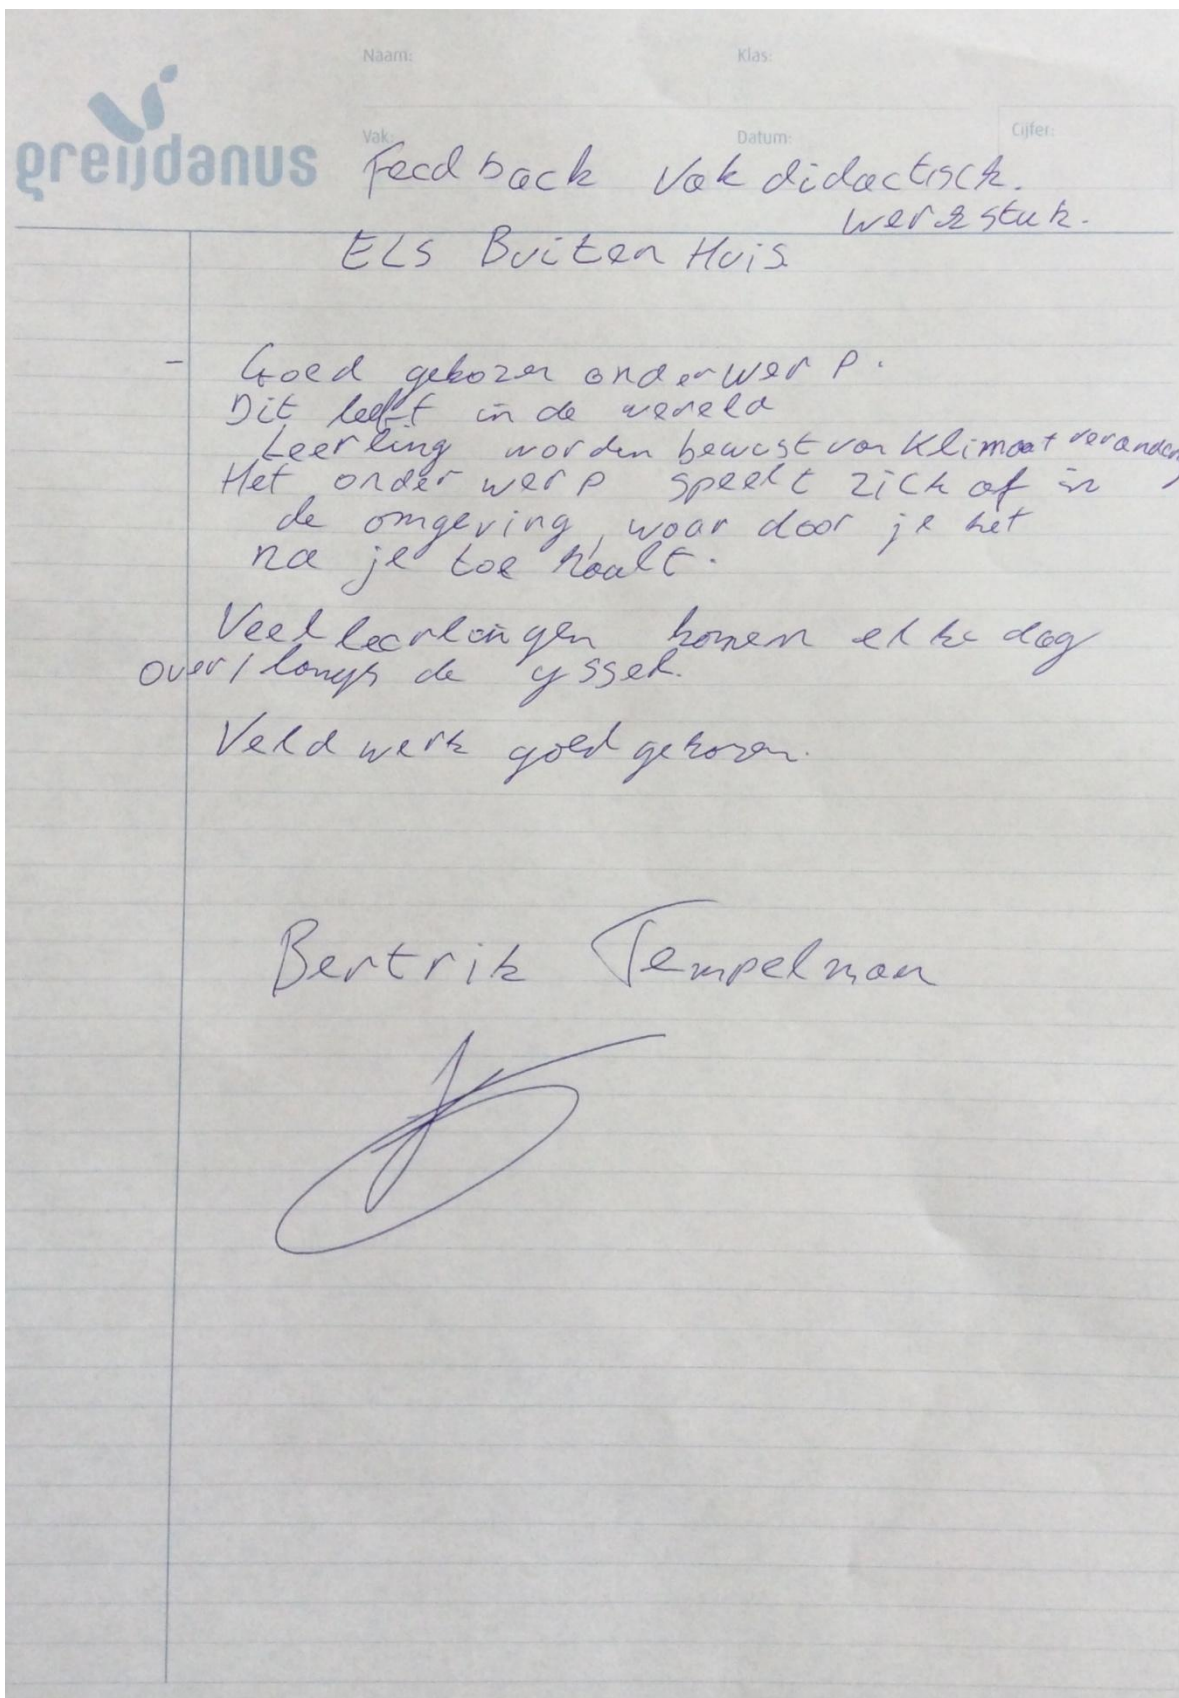 Naam:
Klas:
greijdanus
Vak:
Datum:
Cijfer:
Feedback Vakdidactisch.
werkstuk.
ELS BuitenHuis
- Goed gekozen onderwerp.
Dit leeft in de wereld
Leerling worden bewust van Klimaat
Het onderwerp speelt zich af in
de omgeving, waar door je het
na je toe haalt.
Veel leerlingen komen elke dag
over/langs de yssel.
Veldwerk goed gekozen.
Bertrik Tempelman